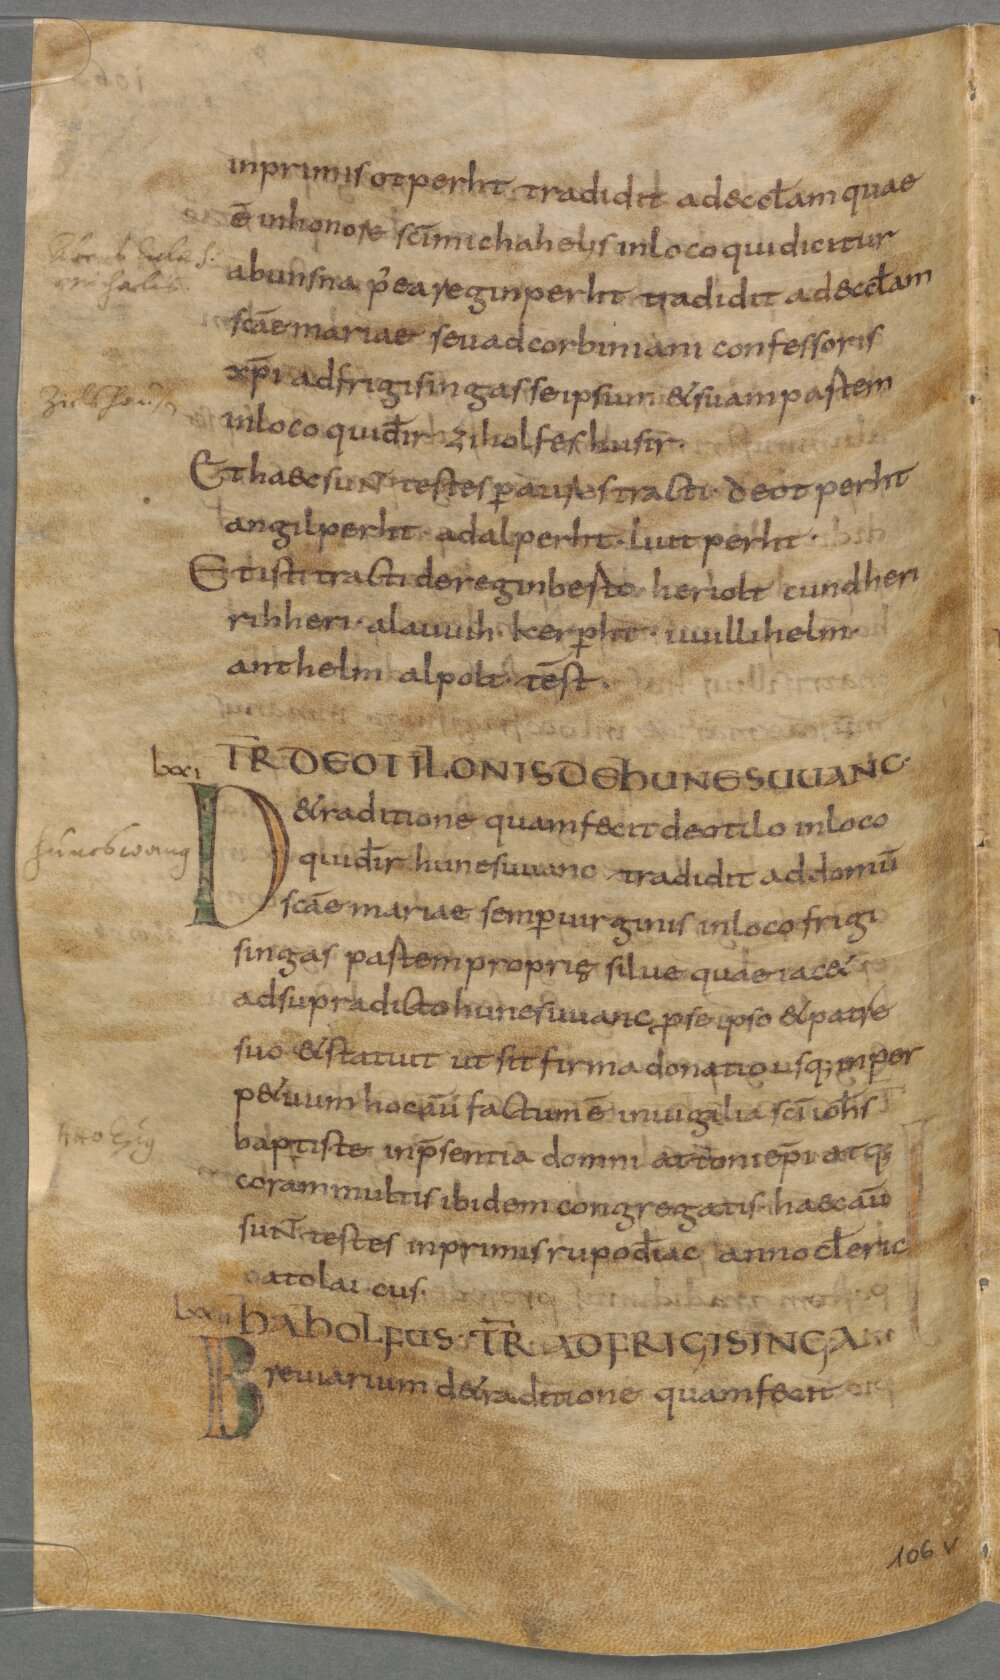 inprimis otperht tradidit ad eccłam quae
ē in honore scī michahelis in loco qui dicitur
abunsna p̄ ea reginperht tradidit ad eccłam
scāe mariae seu ad corbiniani confessoris
xp̄i ad frigisingas se ipsum & suam partem
in loco qui dir̄ ziholfeshusir.
Et haec sunt testes p aures tracti. deotperht
angilperht. adalperht. liutperht.
Et isti tracti de reginberto. heriolt cundheri
rihheri. alauuih. kerpht. uuillihelm.
anthelm alpolt. tēst.
lxxi TR̄ DEOTILONIS DE HUNESUUANC.
De traditione quam fecit deotilo in loco
Huneswang
qui dir̄ hunesuuanc tradidit ad domū
scāe mariae semp uirginis in loco frigi
singas partem proprię silue quae iac&
ad supradicto hunesuuanc p se ipso & patre
suo & statuit ut sit firma donatio usq; in per
p&uum hoc aū factum ē in uigilia scī ioh̄s
baptiste in p̄sentia domni attoni ep̄i atq;
coram multis ibidem congregatis. haec aū
sunt testes inprimis rupo diāc anno cłeric
catolai cus.
lxxii HAHOLFUS. TR̄. AD FRIGISINGA
Breuiarium de traditione quam fecit
106 v